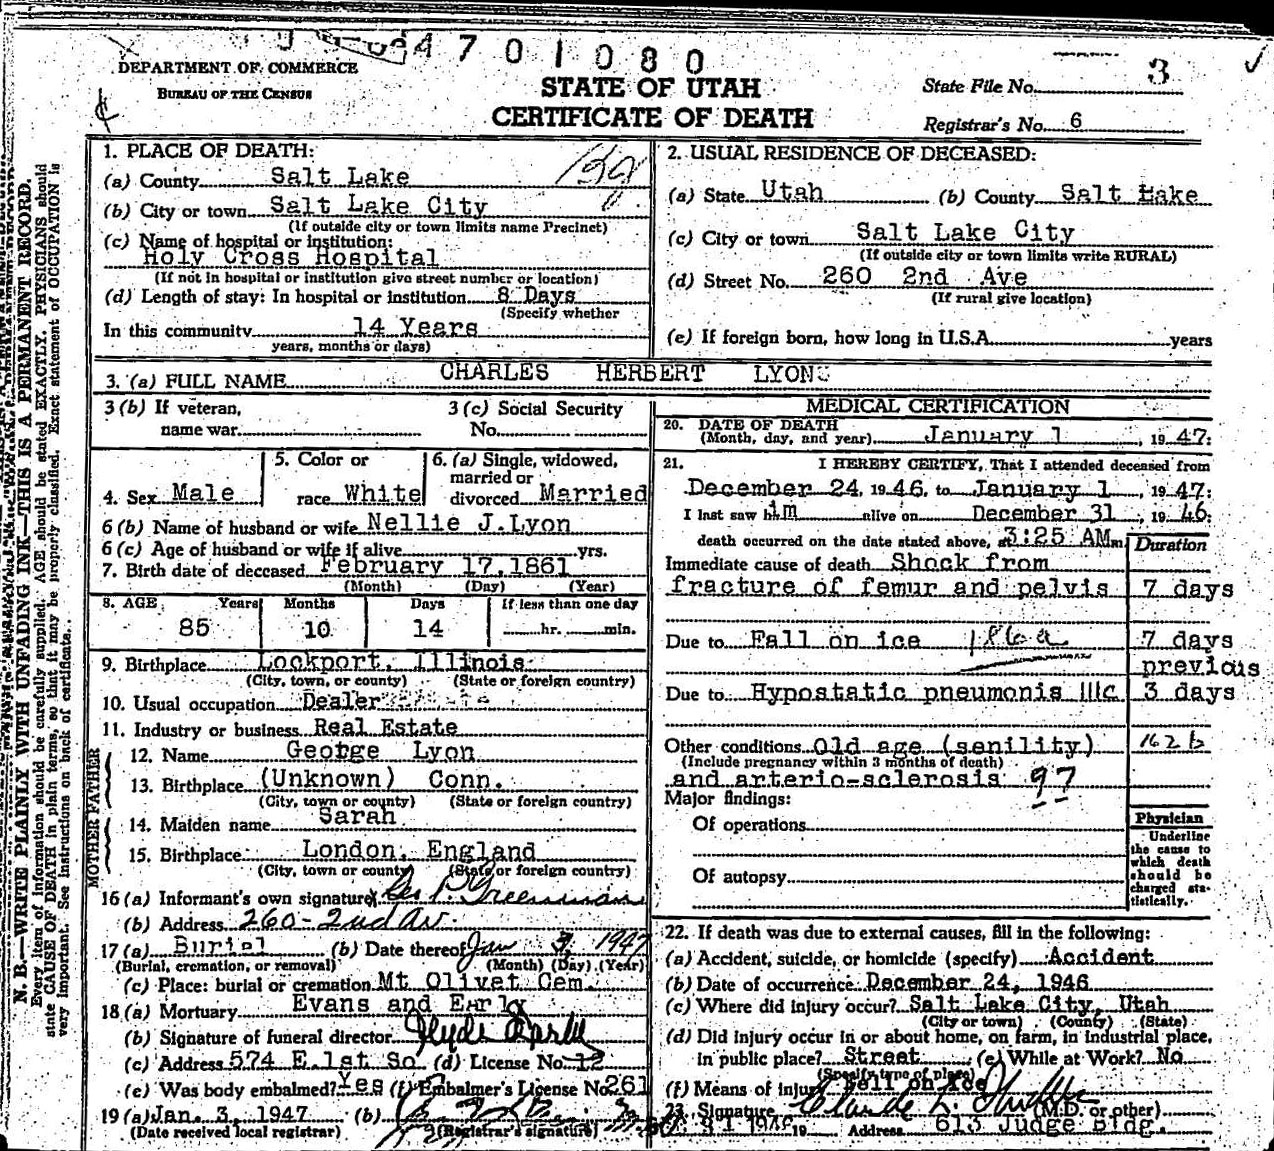 4701080
DEPARTMENT OF COMMERCE
BUREAU OF THE CENSUS
STATE OF UTAH
CERTIFICATE OF DEATH
State File No. 3
Registrar's No. 6
1. PLACE OF DEATH:
(a) County Salt Lake
(b) City or town Salt Lake City
(If outside city or town limits name Precinct)
(c) Name of hospital or institution:
Holy Cross Hospital
(If not in hospital or institution give street number or location)
(d) Length of stay: In hospital or institution 8 Days
(Specify whether
In this community 14 Years
years, months or days)
2. USUAL RESIDENCE OF DECEASED:
(a) State Utah (b) County Salt Lake
(c) City or town Salt Lake City
(If outside city or town limits write RURAL)
(d) Street No. 260 2nd Ave
(If rural give location)
(e) If foreign born, how long in U.S.A. years
3. (a) FULL NAME CHARLES HERBERT LYON
3 (b) If veteran, 3 (c) Social Security
name war No.
4. Sex Male 5. Color or race White 6. (a) Single, widowed, married or divorced Married
6 (b) Name of husband or wife Nellie J.Lyon
6 (c) Age of husband or wife if alive yrs.
7. Birth date of deceased February 17,1861
(Month) (Day) (Year)
8. AGE Years Months Days If less than one day
85 10 14 hr. min.
9. Birthplace Lockport, Illinois
(City, town, or county) (State or foreign country)
10. Usual occupation Dealer
11. Industry or business Real Estate
FATHER
12. Name George Lyon
13. Birthplace (Unknown) Conn.
(City, town or county) (State or foreign country)
MOTHER
14. Maiden name Sarah
15. Birthplace London, England
(City, town or county) (State or foreign country)
16 (a) Informant's own signature Geo P Greenman
(b) Address 260-2nd Av.
17 (a) Burial (b) Date thereof Jan 3, 1947
(Burial, cremation, or removal) (Month) (Day) (Year)
(c) Place: burial or cremation Mt Olivet Cem.
18 (a) Mortuary Evans and Early
(b) Signature of funeral director
(c) Address 574 E.1st So (d) License No. 12
(e) Was body embalmed? Yes (f) Embalmer's License No. 261
19 (a) Jan. 3, 1947 (b)
(Date received local registrar) (Registrar's signature)
MEDICAL CERTIFICATION
20. DATE OF DEATH
(Month, day, and year) January 1, 1947.
21. I HEREBY CERTIFY, That I attended deceased from
December 24, 1946, to January 1, 1947.
I last saw him alive on December 31, 1946.
death occurred on the date stated above, at 3:25 AM m. Duration
Immediate cause of death Shock from
fracture of femur and pelvis 7 days
Due to Fall on ice 186a 7 days
previous
Due to Hypostatic pneumonis IIIc 3 days
Other conditions Old age (senility) 162b
(Include pregnancy within 3 months of death)
and arterio-sclerosis 97
Major findings:
Of operations
Of autopsy
Physician
Underline
the cause to
which death
should be
charged sta-
tistically.
22. If death was due to external causes, fill in the following:
(a) Accident, suicide, or homicide (specify) Accident
(b) Date of occurrence December 24, 1946
(c) Where did injury occur? Salt Lake City, Utah
(City or town) (County) (State)
(d) Did injury occur in or about home, on farm, in industrial place,
in public place? Street (e) While at Work? No
(Specify type of place)
(f) Means of injury Fell on Ice
23. Signature Claude L. (M.D. or other)
19 Address 613 Judge Bldg.
N. B.—WRITE PLAINLY WITH UNFADING INK—THIS IS A PERMANENT RECORD.
Every item of information should be carefully supplied. AGE should be stated EXACTLY. PHYSICIANS should
state CAUSE OF DEATH in plain terms, so that it may be properly classified. Exact statement of OCCUPATION is
very important. See instructions on back of certificate.